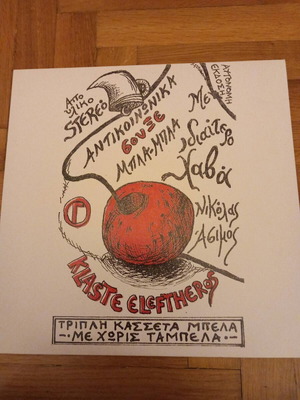 ΑΠΟ
ΥΛΙΚΟ
STEREO
ΑΝΤΙΚΟΙΝΩΝΙΚΑ
ΣΟΥΞΕ
ΜΠΛΑ-ΜΠΛΑ
ΑΥΤΟΝΟΜΗ
ΕΚΔΟΣΗ
Με
ιδιαίτερο
Χαβά
Νικόλας
Άσιμος
KLASTE ELEFTHEROS
ΤΡΙΠΛΗ ΚΑΣΣΕΤΑ ΜΠΕΛΑ
-ΜΕ ΧΩΡΙΣ ΤΑΜΠΕΛΑ-